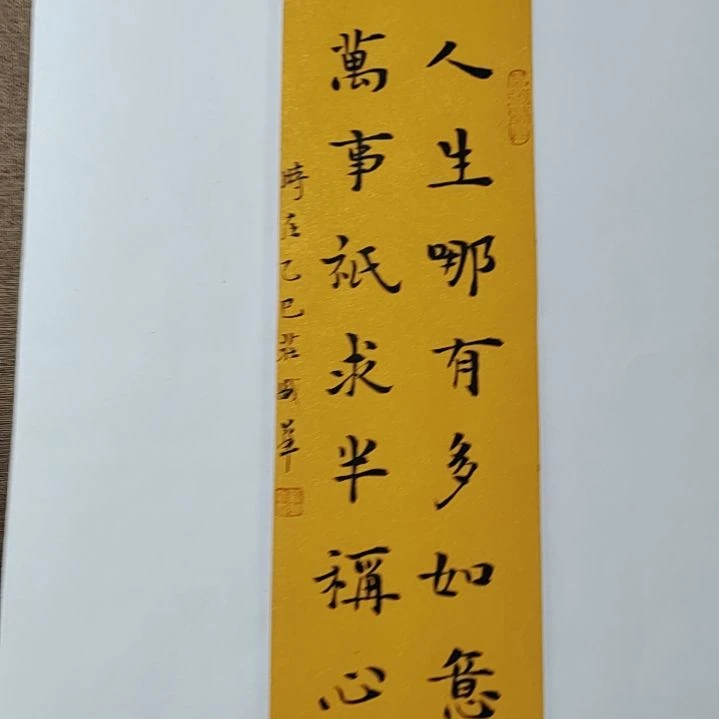 人生哪有多如意
萬事祇求半稱心
時在乙巳